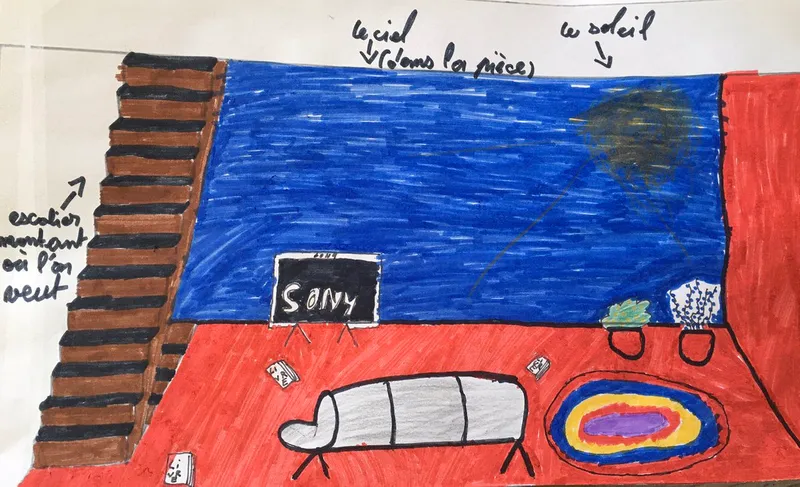 le ciel
(dans la pièce)
le soleil
escalier
montant
où l'on
veut
SONY
SONY